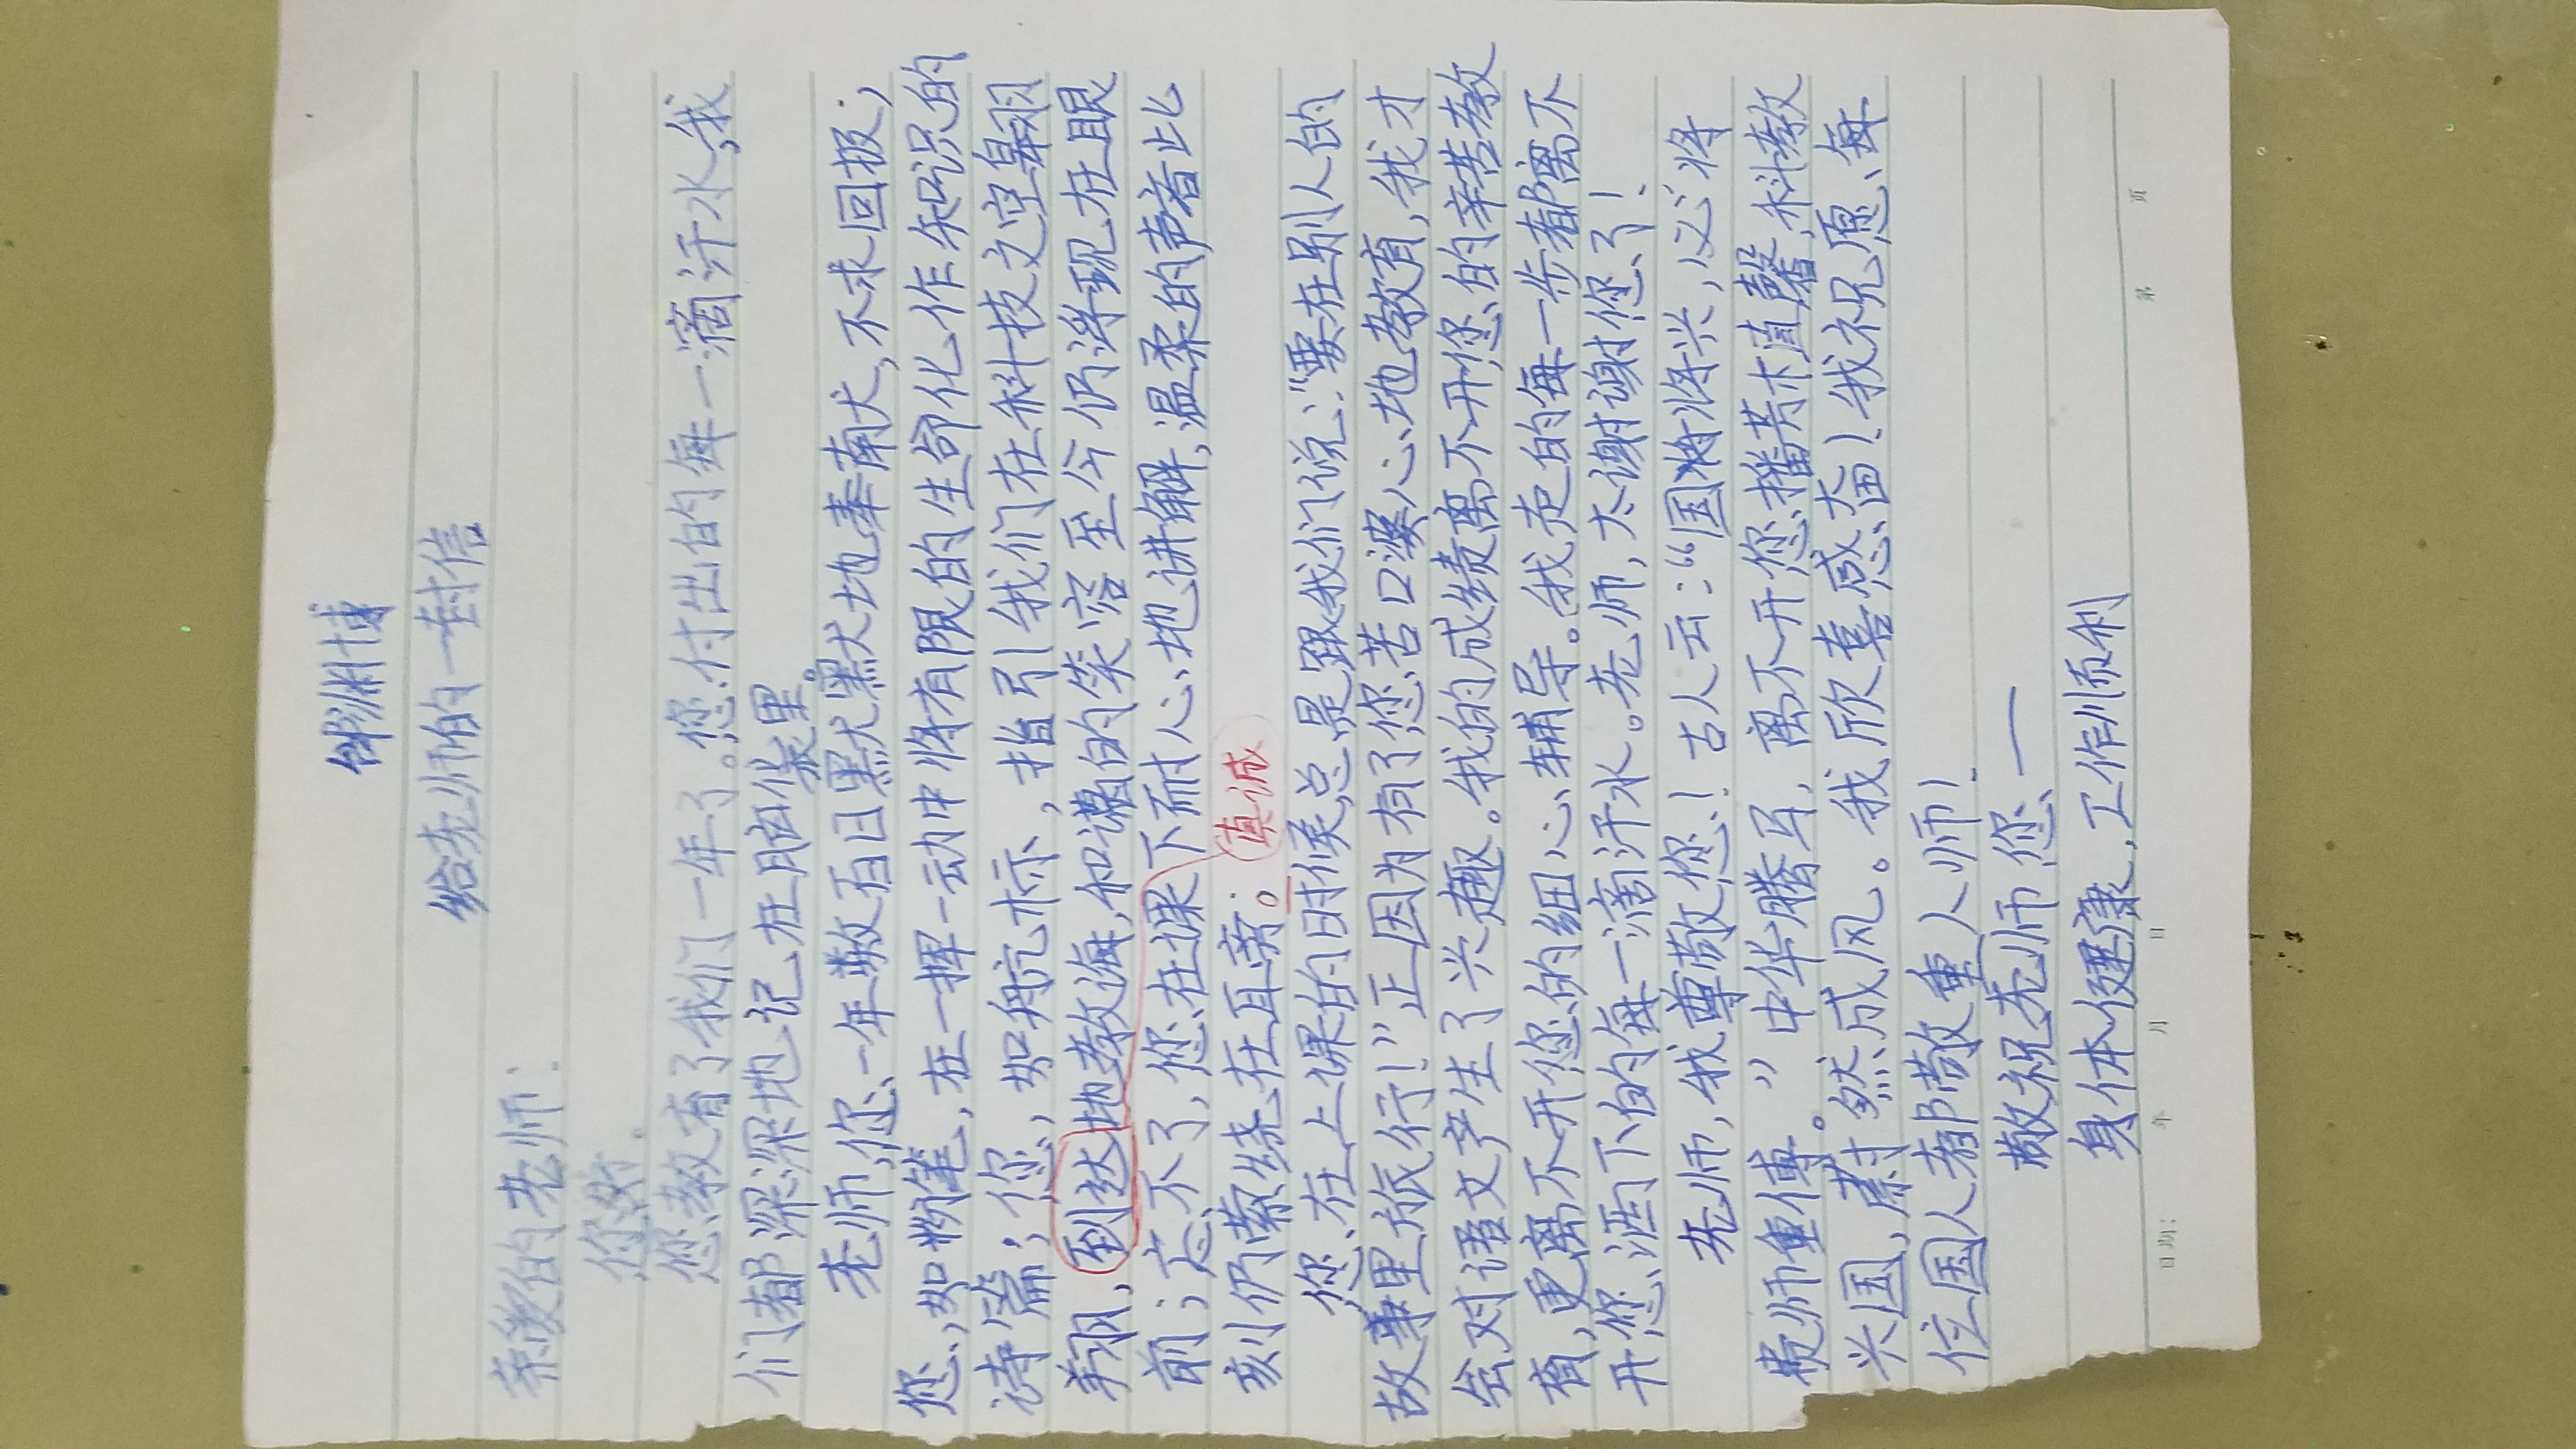 给老师的一封信
亲爱的老师:
您好.
您教育了我们一年了。您付出的每一滴汗水,我
们都深深地记在脑袋里。
老师,您一年数百日默默地奉献,不求回报;
您,如粉笔,在一挥一动中将有限的生命化作知识的
诗篇;您,如航标,指引我们在科技文空翱
翔,到达地教诲,和谐的笑容至今仍浮现在眼
前;忘不了,您在课下耐心地讲解,温柔的声音此
真诚
刻仍萦绕在耳旁。
您在上课的时候总是跟我们说:“要在别人的
故事里旅行!”正因为有了您苦口婆心地教育,我才
会对语文产生了兴趣。我的成绩离不开您的辛苦教
育,更离不开您的细心辅导。我走的每一步都离不
开您洒下的每一滴汗水。老师,太谢谢您了!
老师,我尊敬您!古人云:“国将兴,必将
贵师重傅。”中华腾马,离不开您播芳木直馨,科教
兴国,蔚然成风。我欣喜感奋!我祝愿,每
位国人都敬重人师!
敬祝老师您—
身体健康,工作顺利
日期: 年 月 日 第 页